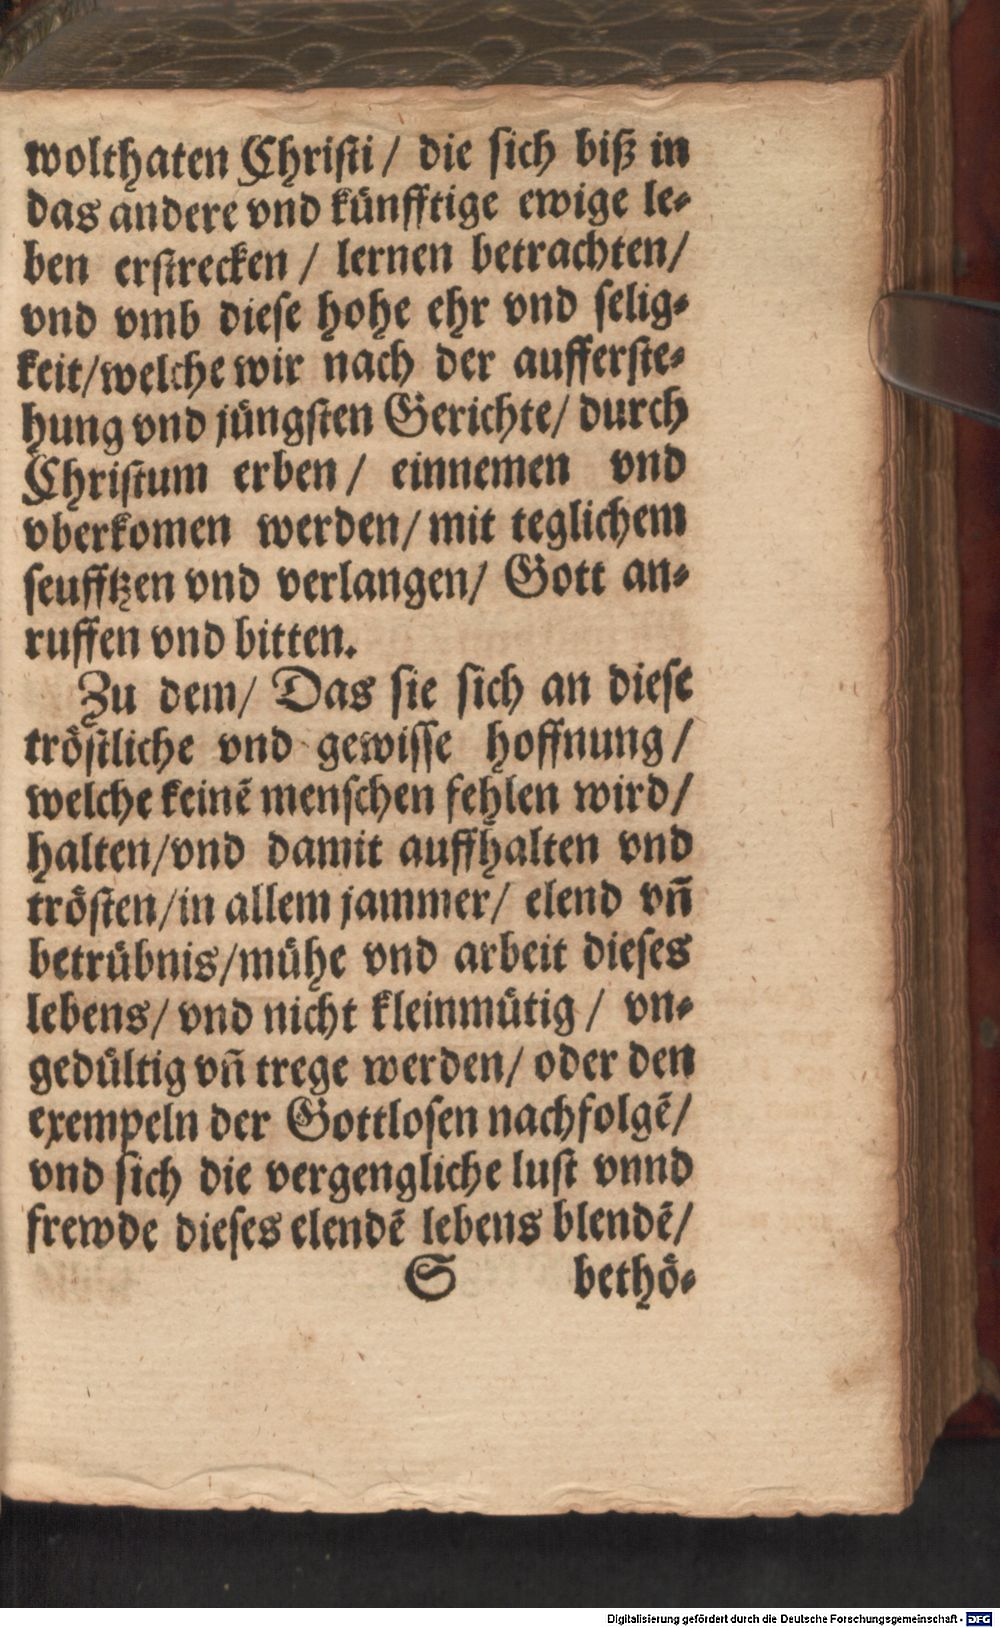 wolthaten Christi / die sich biß in
das andere vnd künfftige ewige le⸗
ben erstrecken / lernen betrachten/
vnd vmb diese hohe ehr vnd selig⸗
keit/welche wir nach der aufferste⸗
hung vnd jüngsten Gerichte/ durch
Christum erben / einnemen vnd
vberkomen werden/ mit teglichem
seufftzen vnd verlangen/ Gott an⸗
ruffen vnd bitten.
Zu dem/ Das sie sich an diese
tröstliche vnd gewisse hoffnung /
welche keinē menschen fehlen wird/
halten/vnd damit auffhalten vnd
trösten/in allem jammer/ elend vñ
betrübnis/mühe vnd arbeit dieses
lebens/ vnd nicht kleinmütig / vn⸗
gedültig vñ trege werden/ oder den
exempeln der Gottlosen nachfolgē/
vnd sich die vergengliche lust vnnd
frewde dieses elendē lebens blendē/
S bethö⸗
Digitalisierung gefördert durch die Deutsche Forschungsgemeinschaft - DFG